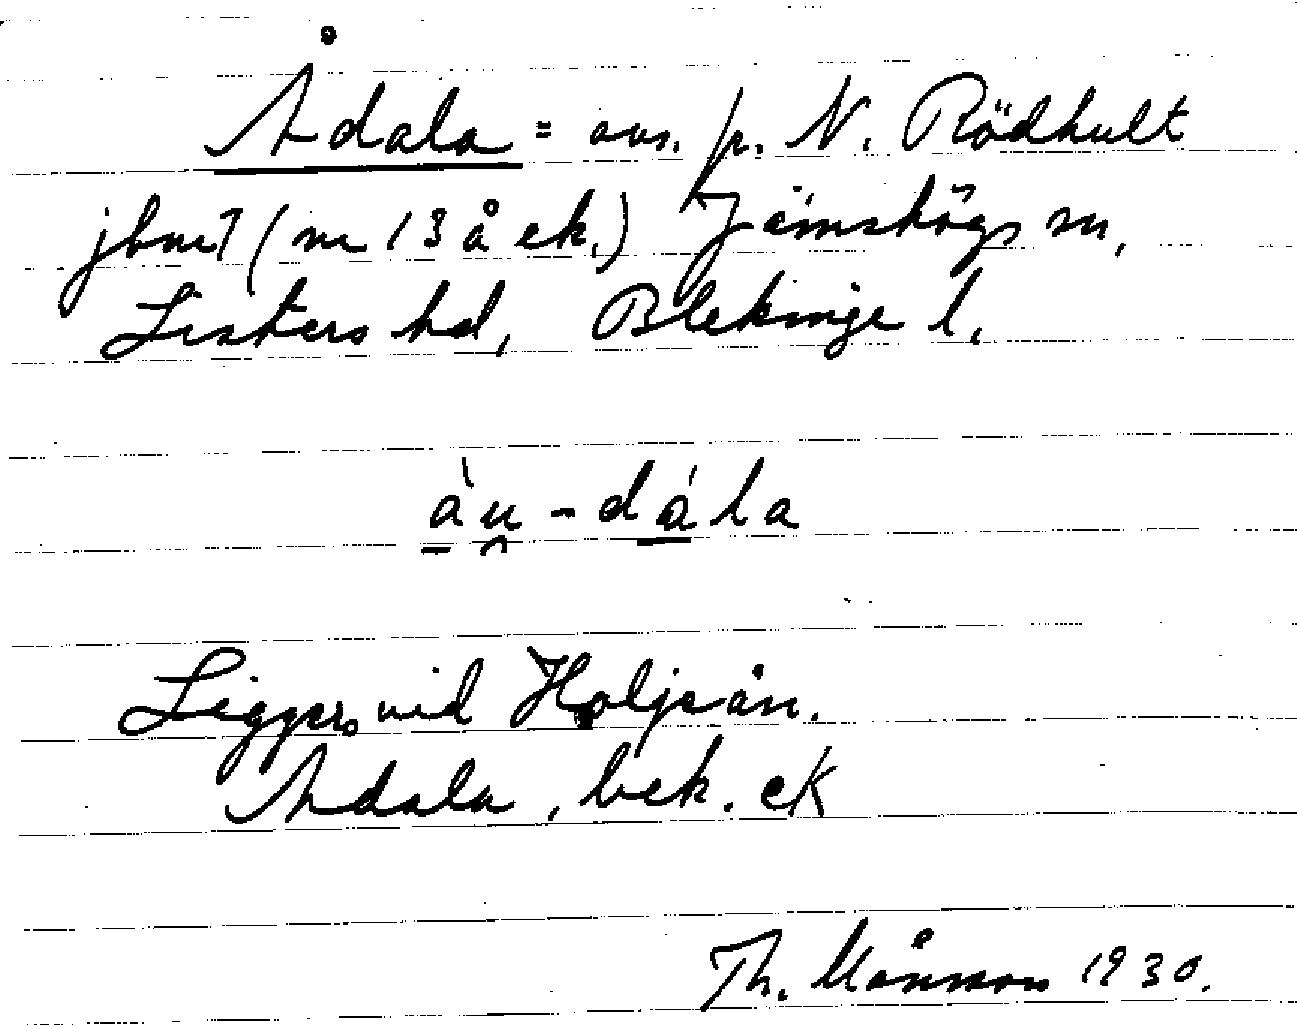 Ådala = avs. fr. N. Rödhult
jbnr 7 (nr 13 å ek.) Jämshögs sn,
Listers hd, Blekinge l.
àu - dála
Ligger vid Holjeån.
Ådala, bek. ek
Th. Månsson 1930.